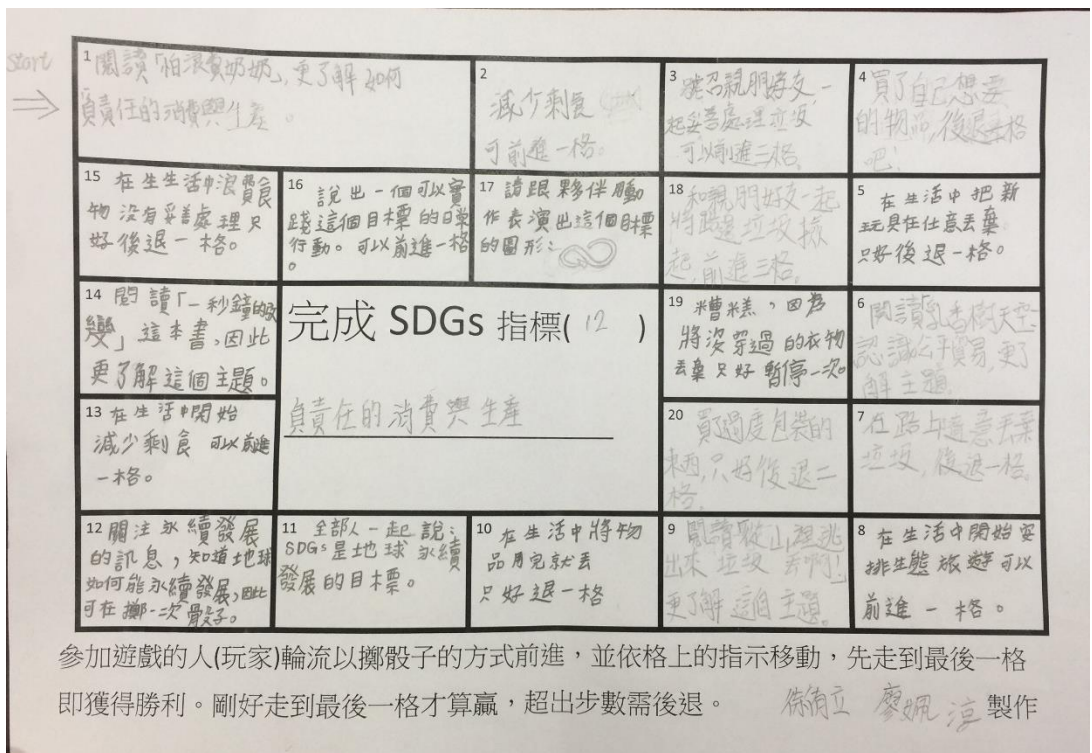 start
1 閱讀「怕浪費奶奶」,更了解如何
負責任的消費與生產。
2
減少剩食
可前進一格。
3 號召親朋好友,一
起妥善處理垃圾
可以前進三格。
4 買了自己想要
的物品,後退三格
吧!
15 在生生活中浪費食
物沒有妥善處理只
好後退一格。
16 說出一個可以實
踐這個目標的日常
行動。可以前進一格
。
17 請跟夥伴動
作表演出這個目標
的圖形:
18 和親朋好友一起
將路邊垃圾撿
起,前進三格。
5 在生活中把新
玩具在任意丟棄
只好後退一格。
14 閱讀「一秒鐘的改
變」這本書,因此
更了解這個主題。
完成 SDGs 指標( 12 )
負責任的消費與生產
19 糟糕,因為
將沒穿過的衣物
丟棄只好暫停一次。
6 閱讀乳香樹天空
認識公平貿易,更了
解主題。
13 在生活中開始
減少剩食 可以前進
一格。
20 買過度包裝的
東西,只好後退二
格。
7 在路上隨意丟棄
垃圾,後退一格。
12 關注永續發展
的訊息,知道地球
如何能永續發展,因此
可在擲一次骰子。
11 全部人一起說:
SDGs是地球永續
發展的目標。
10 在生活中將物
品用完就丟
只好退一格
9 閱讀 山 逃
出來 垃圾 丟啊!
更了解這自主題。
8 在生活中開始安
排生態旅遊可以
前進一格。
參加遊戲的人(玩家)輪流以擲骰子的方式前進,並依格上的指示移動,先走到最後一格
即獲得勝利。剛好走到最後一格才算贏,超出步數需後退。 製作